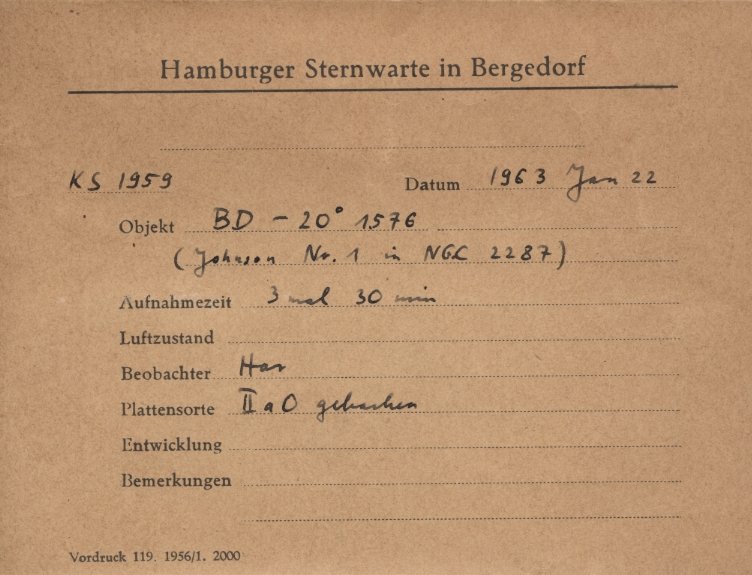 Hamburger Sternwarte in Bergedorf
KS 1959 Datum 1963 Jan 22
Objekt BD - 20° 1576
(Johnson Nr. 1 in NGC 2287)
Aufnahmezeit 3 mal 30 min
Luftzustand
Beobachter Har
Plattensorte II a O gebacken
Entwicklung
Bemerkungen
Vordruck 119. 1956/1. 2000